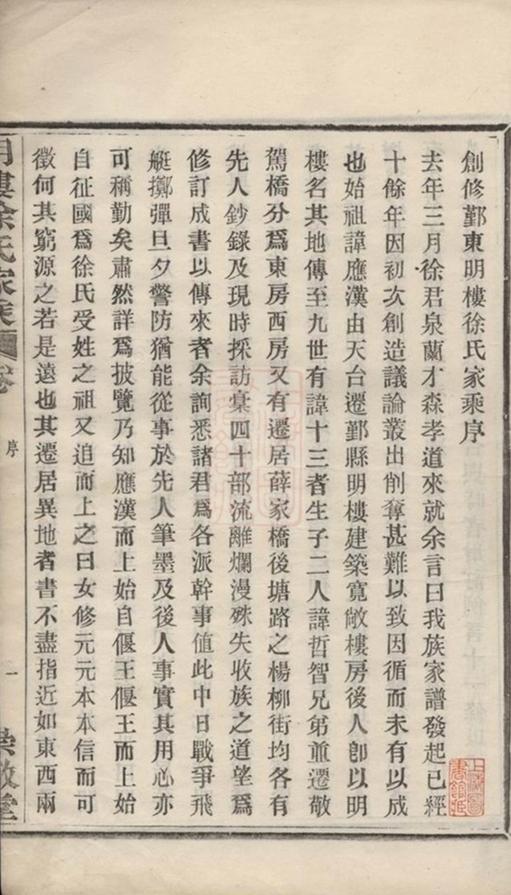 創修鄞東明樓徐氏家乘序
去年三月徐君泉蘭才森孝道來就余言曰我族家譜發起已經
十餘年因初次創造議論叢出削奪甚難以致因循而未有以成
也始祖諱應漢由天台遷鄞縣明樓建築寬敞樓房後人卽以明
樓名其地傳至九世有諱十三者生子二人諱哲智兄弟重遷敬
駕橋分爲東房西房又有遷居薛家橋後塘路之楊柳街均各有
先人鈔錄及現時採訪稾四十部流離爛漫殊失收族之道望爲
修訂成書以傳來者余詢悉諸君爲各派幹事値此中日戰爭飛
艇擲彈旦夕警防猶能從事於先人筆墨及後人事實其用心亦
可稱勤矣肅然詳爲披覽乃知應漢而上始自偃王偃王而上始
自征國爲徐氏受姓之祖又追而上之曰女修元元本本信而可
徵何其窮源之若是遠也其遷居異地者書不盡指近如東西兩
明樓徐氏家乘
卷
序
一
崇敬堂